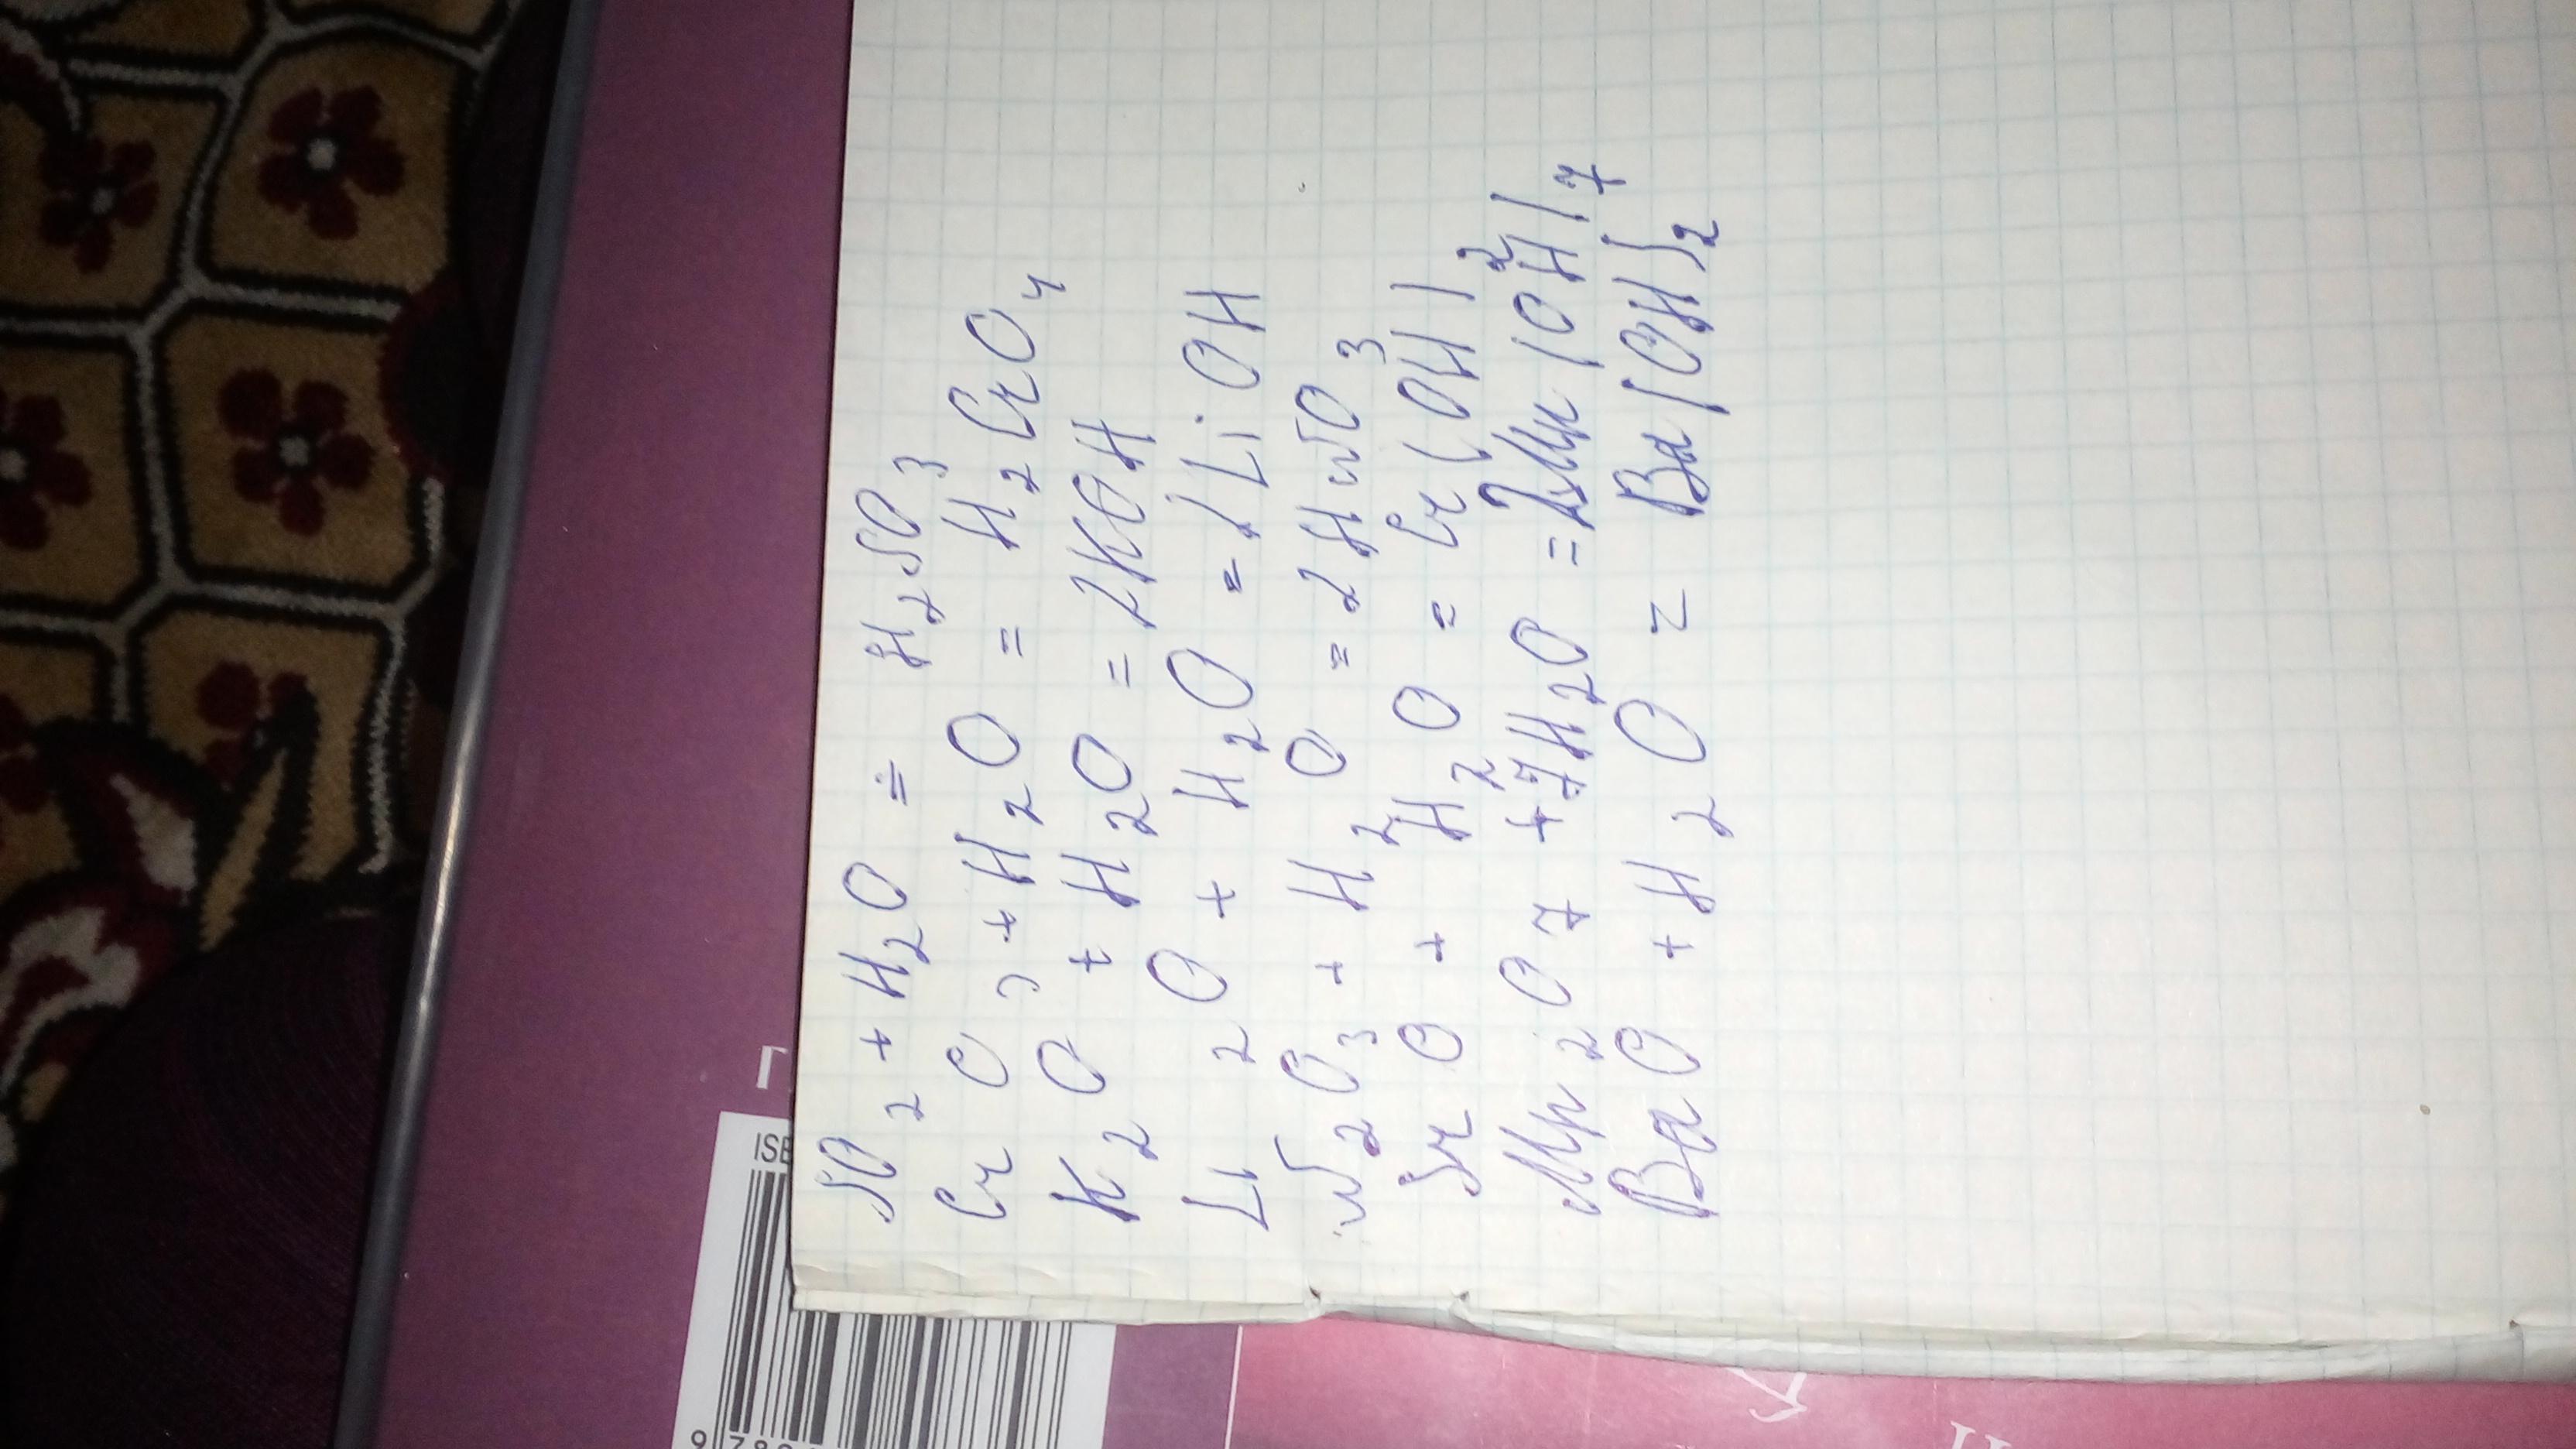 SO2 + H2O = H2SO3
CrO3 + H2O = H2CrO4
K2O + H2O = 2KOH
Li2O + H2O = 2LiOH
N2O3 + H2O = 2HNO3
SrO + H2O = Cr(OH)2
Mn2O7 + 7H2O = 2Mn(OH)7
BaO + H2O = Ba(OH)2
Г
ISB